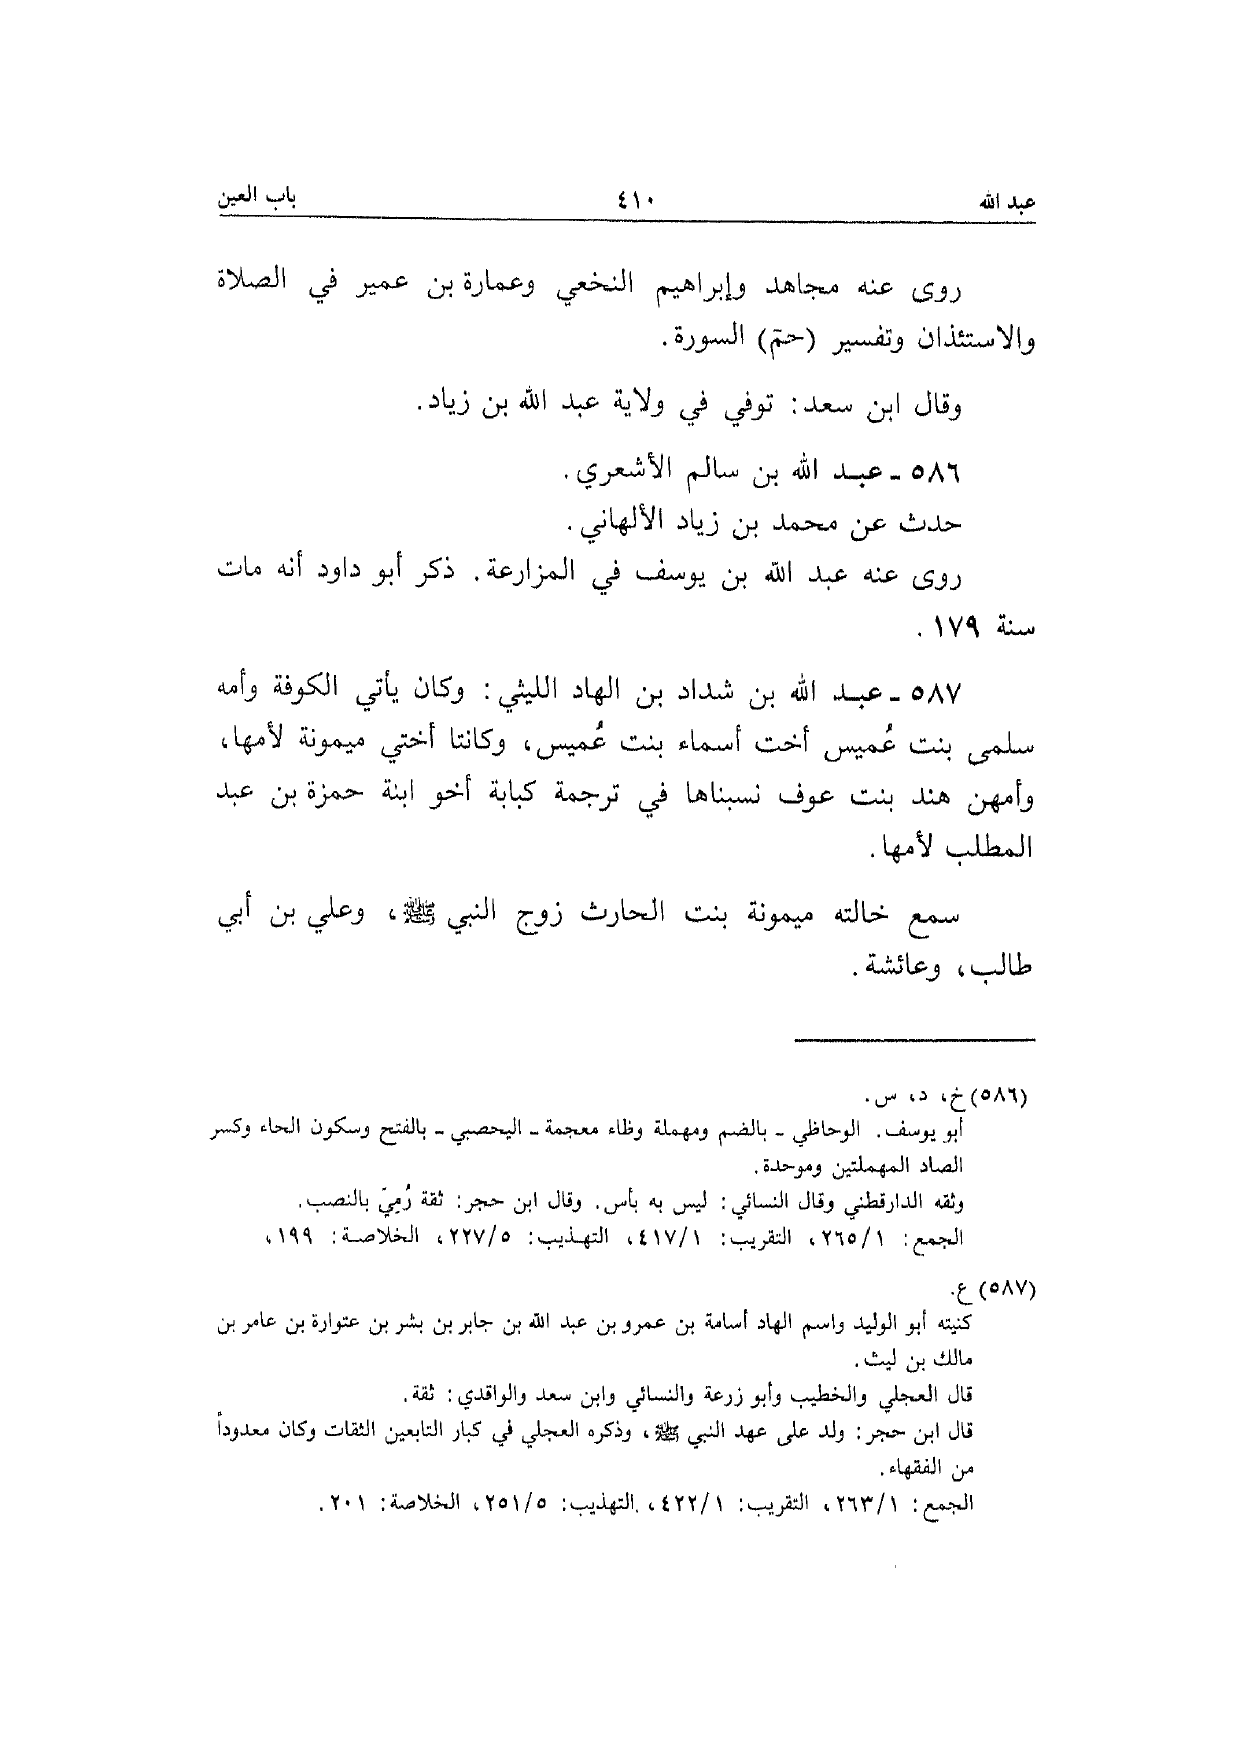 عبد الله ٤١٠ باب العين
روى عنه مجاهد وإبراهيم النخعي وعمارة بن عمير في الصلاة
والاستئذان وتفسير (حمّ) السورة.
وقال ابن سعد: توفي في ولاية عبد الله بن زياد.
٥٨٦ ـ عبـد الله بن سالم الأشعري.
حدث عن محمد بن زياد الألهاني.
روى عنه عبد الله بن يوسف في المزارعة. ذكر أبو داود أنه مات
سنة ١٧٩.
٥٨٧ ـ عبـد الله بن شداد بن الهاد الليثي: وكان يأتي الكوفة وأمه
سلمى بنت عُميس أخت أسماء بنت عُميس، وكانتا أختي ميمونة لأمها،
وأمهن هند بنت عوف نسبناها في ترجمة كبابة أخو ابنة حمزة بن عبد
المطلب لأمها.
سمع خالته ميمونة بنت الحارث زوج النبي ﷺ، وعلي بن أبي
طالب، وعائشة.
(٥٨٦) خ، د، س.
أبو يوسف. الوحاظي ـ بالضم ومهملة وظاء معجمة ـ اليحصبي ـ بالفتح وسكون الحاء وكسر
الصاد المهملتين وموحدة.
وثقه الدارقطني وقال النسائي: ليس به بأس. وقال ابن حجر: ثقة رُمِيّ بالنصب.
الجمع: ٢٦٥/١، التقريب: ٤١٧/١، التهذيب: ٢٢٧/٥، الخلاصة: ١٩٩،
(٥٨٧) ع.
كنيته أبو الوليد واسم الهاد أسامة بن عمرو بن عبد الله بن جابر بن بشر بن عتوارة بن عامر بن
مالك بن ليث.
قال العجلي والخطيب وأبو زرعة والنسائي وابن سعد والواقدي: ثقة.
قال ابن حجر: ولد على عهد النبي ﷺ، وذكره العجلي في كبار التابعين الثقات وكان معدوداً
من الفقهاء.
الجمع: ٢٦٣/١، التقريب: ٤٢٢/١، التهذيب: ٢٥١/٥، الخلاصة: ٢٠١.